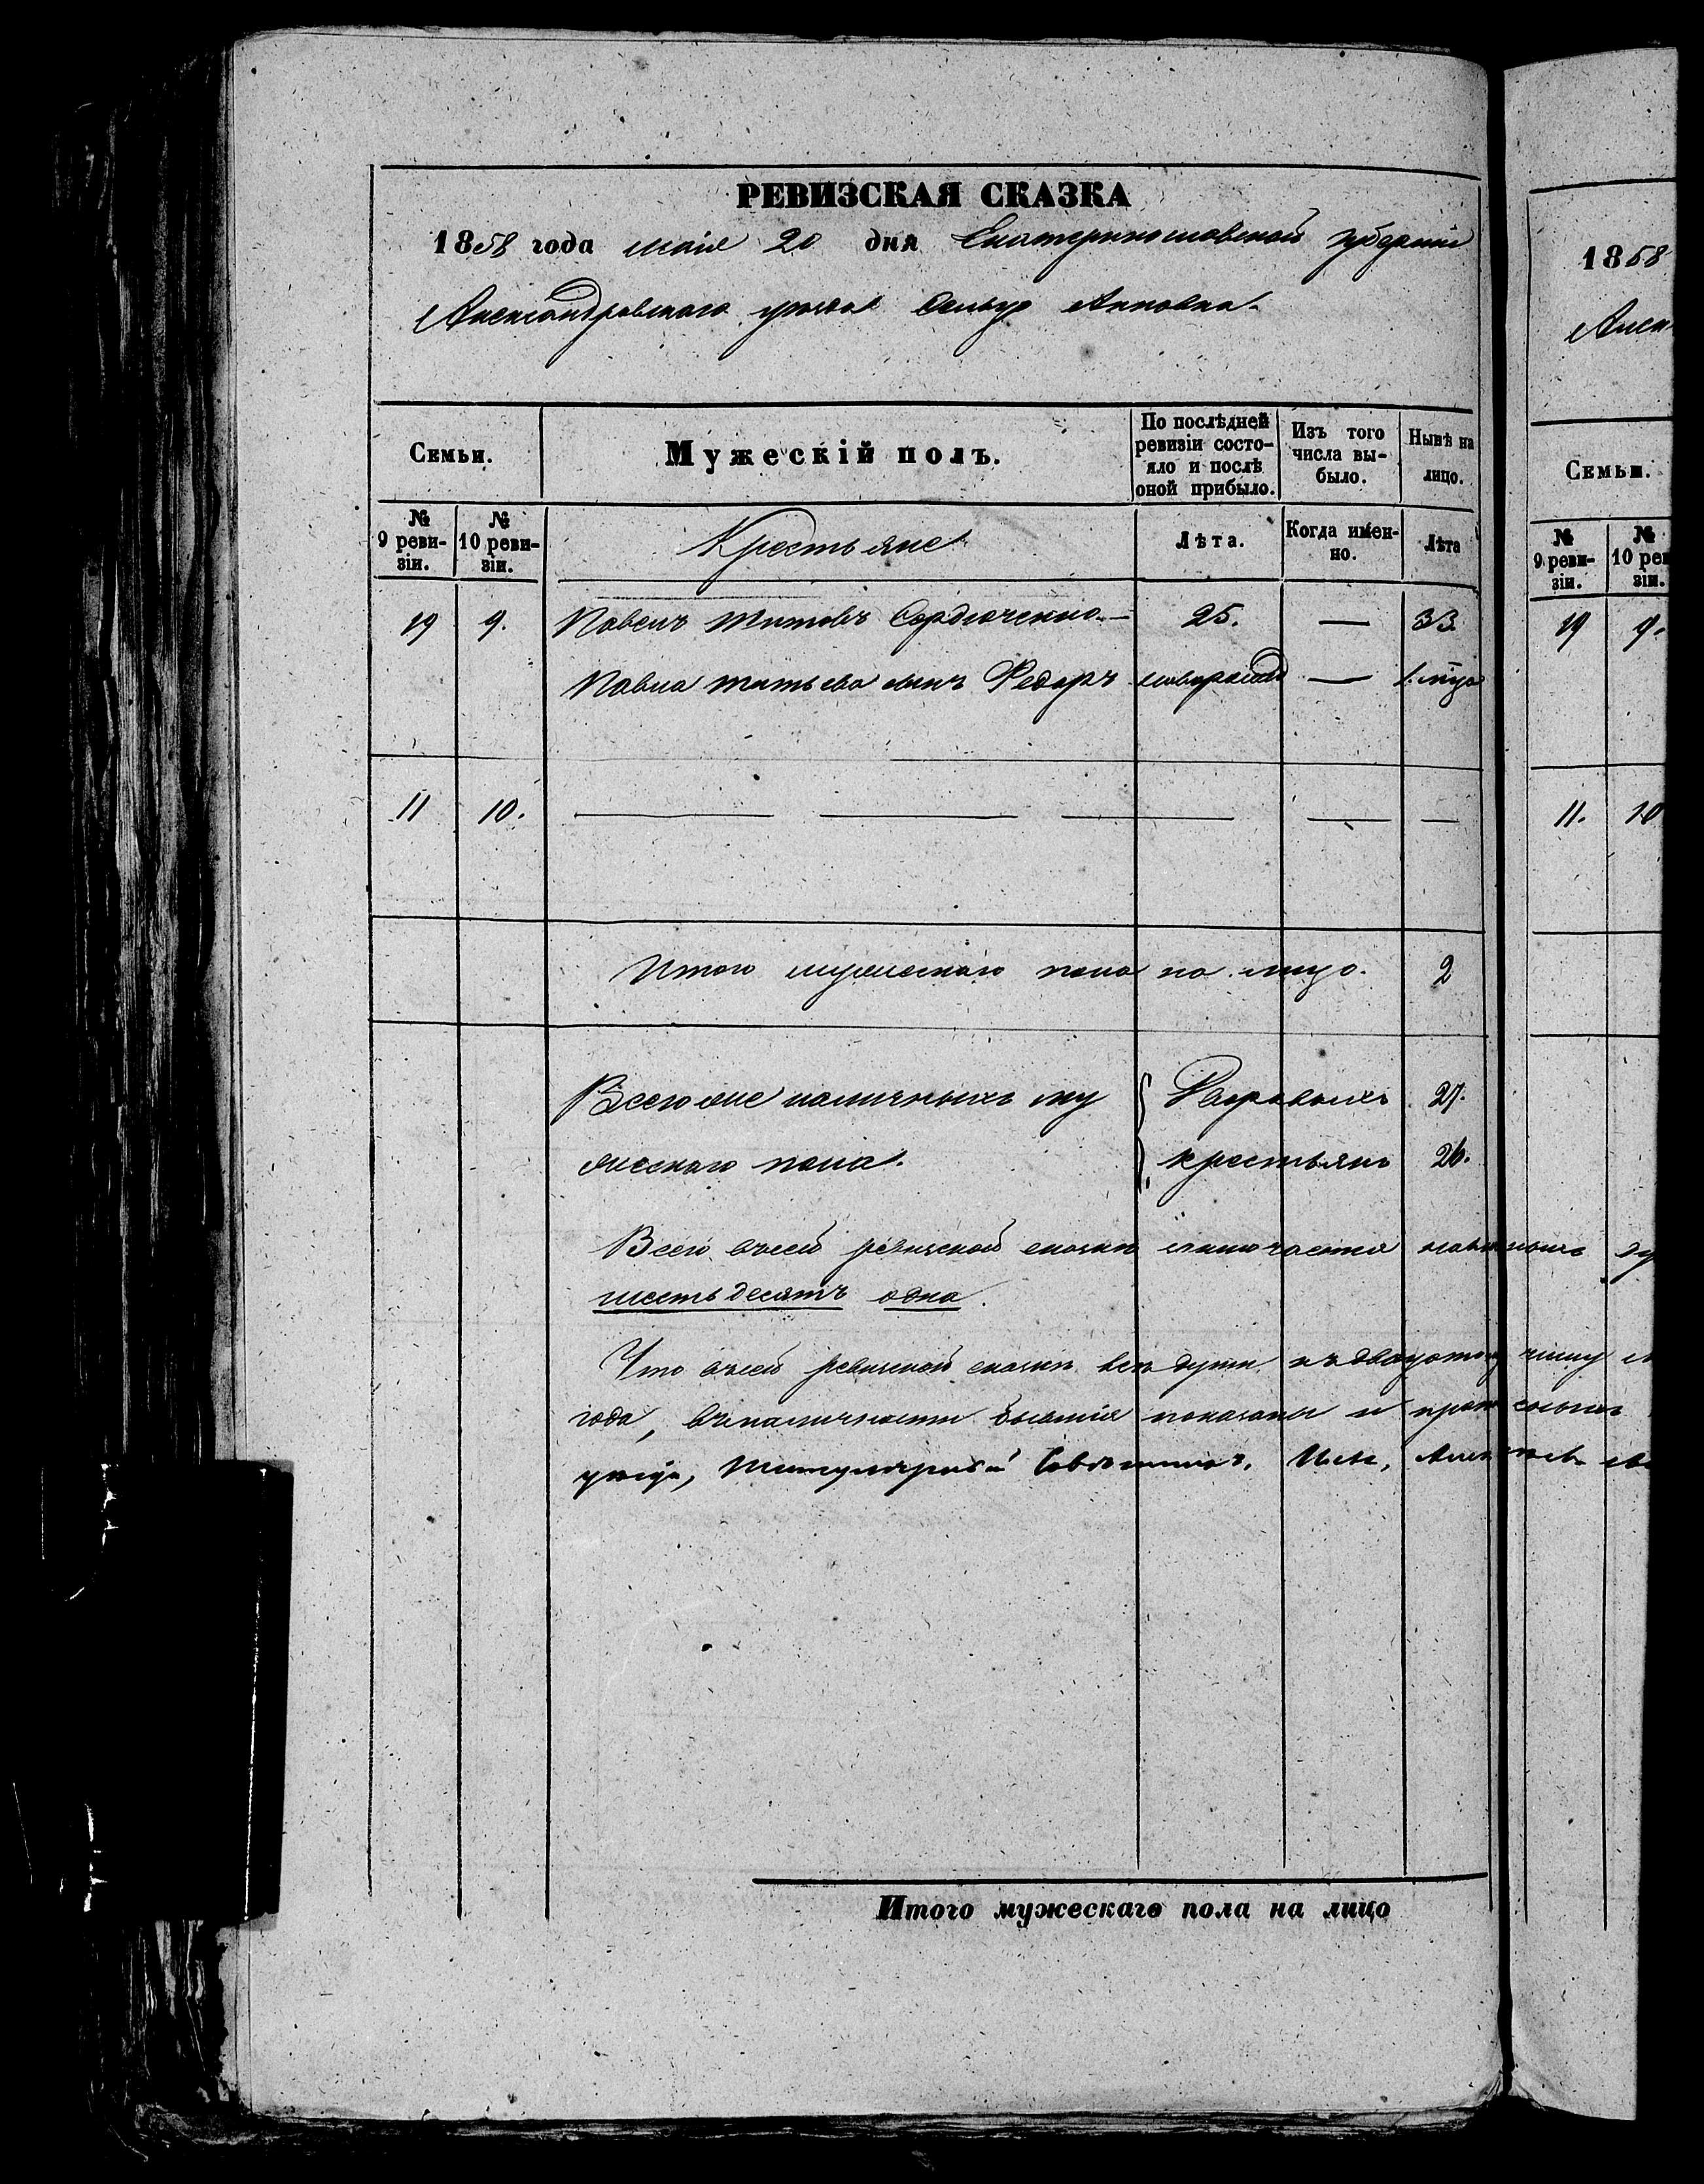 РЕВИЗСКАЯ СКАЗКА
1858 года маія 20 дня Екатеринославской губерніи
Александровскаго уѣзда сельцо Анновка.
Семьи.
Мужескій полъ.
По послѣдней ревизіи состо-
яло и послѣ
оной прибыло.
Изъ того
числа вы-
было.
Нынѣ на
лицо.
№
9 реви-
зіи.
№
10 реви-
зіи.
Крестьяне
Лѣта.
Когда имен-
но.
Лѣта
19 9. Павелъ Титовъ Сердюченко — 25. — 33
Павла Титьева сынъ Федоръ — 1.
11 10. — — — — —
Итого мужескаго пола на лицо. 2
Всего же наличныхъ му Дворовыхъ 27.
жескаго пола. крестьянъ 26.
Всего въсей ревизской сказкѣ
шестьдесятъ одна.
Что въсей ревизской сказкѣ всѣ души числу
года, въналичности бывшія показаны и
Титулярный Совѣтникъ
Итого мужескаго пола на лицо
1858
Алек
Семьи.
№
9 реви-
зіи.
№
10 рев
зіи.
19 9.
11. 10